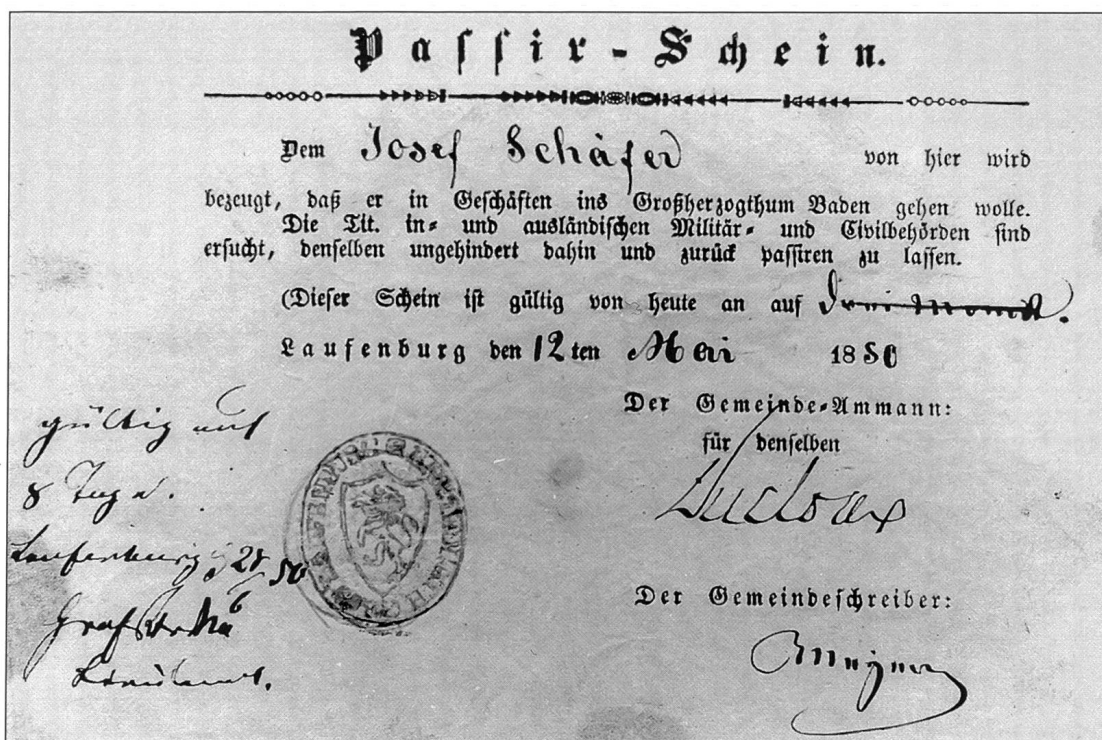 Passir-Schein.
Dem Josef Schäfer von hier wird
bezeugt, daß er in Geschäften ins Großherzogthum Baden gehen wolle.
Die Tit. in- und ausländischen Militär- und Civilbehörden sind
ersucht, denselben ungehindert dahin und zurück passiren zu lassen.
(Dieser Schein ist gültig von heute an auf drei Monat.
Laufenburg den 12ten Mai 1850
Der Gemeinde-Ammann:
für denselben
Der Gemeindeschreiber:
gültig auf
8 Tage.
Laufenburg
Lieutenant.